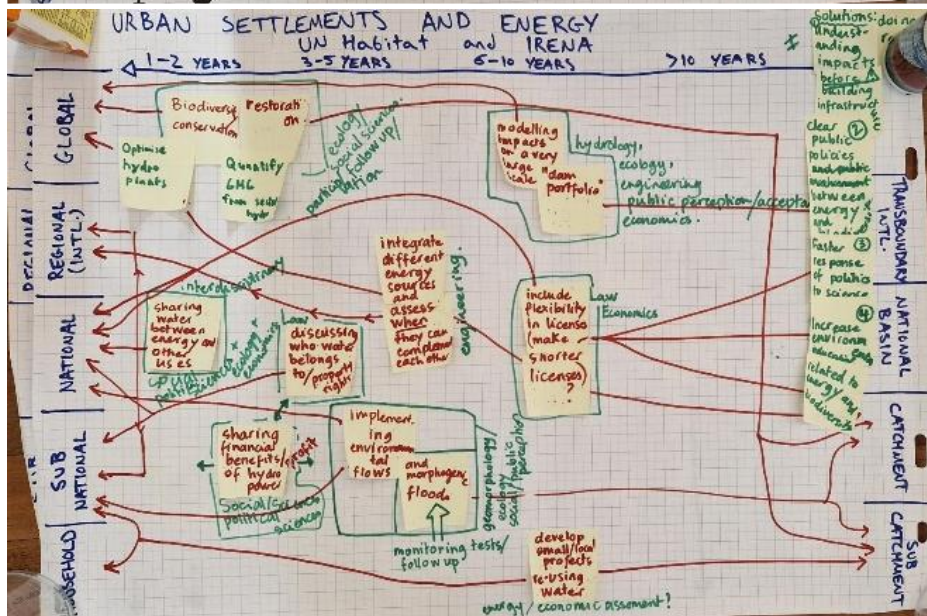 URBAN SETTLEMENTS AND ENERGY
UN Habitat and IRENA
1-2 YEARS 3-5 YEARS 6-10 YEARS >10 YEARS
GLOBAL
REGIONAL
(INTL.)
NATIONAL
SUB
NATIONAL
HOUSEHOLD
Biodiversity
conservation
restorati
on
Optimise
hydro
plants
Quantify
GHG
ecology
social science
follow up/
particip
pation
modelling
impacts
on a very
large
scale
"dam
portfolio"
hydrology,
ecology,
engineering
public perception/accepta
economics.
integrate
different
energy
sources
and
assess
when
they can
complement
each other
engineering
interdisciplinary
sharing
water
between
energy and
other
uses
Law
discussing
who water
belongs
to/property
rights
include
flexibility
in license
(make
shorter
licenses)
?
Law
Economics
sharing
financial
benefits/profit
of hydro
power
Social sciences
political
sciences
implement
ing
environmen
tal
flows
and
morphogenic
floods
geomorphology/
ecology
social/public
perception
monitoring tests/
follow up
develop
small/local
projects
re-using
water
energy/economic assoment?
Solutions:
underst-
anding
impacts
before
building
infrastructure
clear ②
public
policies
and public
involvement
between
energy
and
faster ③
response
of politics
to science
④
Increase
environm
related to
energy and
biodiversity
TRANSBOUNDARY
INTL.
NATIONAL
BASIN
CATCHMENT
SUB
CATCHMENT